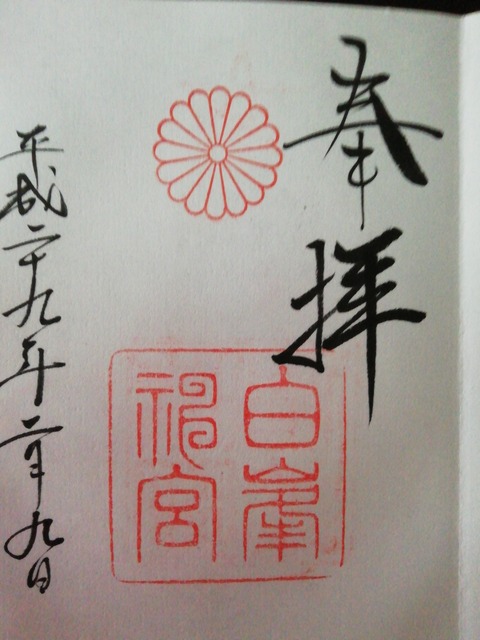 奉拝
白峯
神宮
平成二十九年二月九日